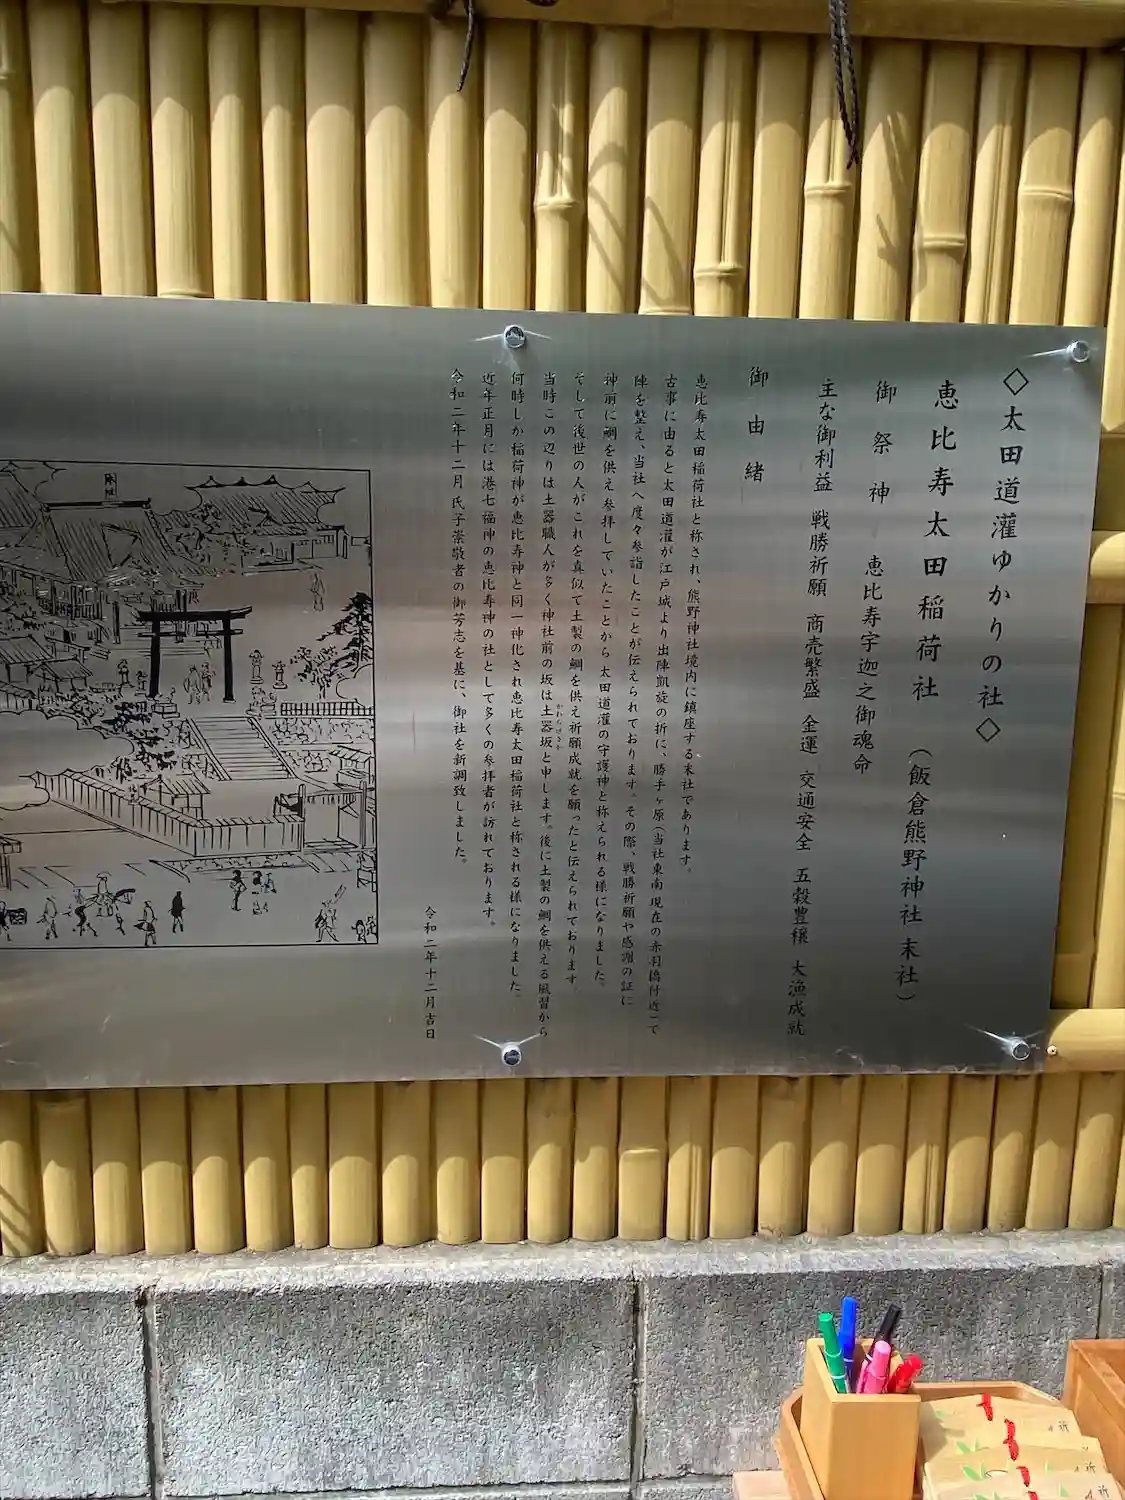 ◇太田道灌ゆかりの社◇
恵比寿太田稲荷社 （飯倉熊野神社 末社）
御祭神 恵比寿宇迦之御魂命
主な御利益 戦勝祈願 商売繁盛 金運 交通安全 五穀豊穣 大漁成就
御由緒
恵比寿太田稲荷社と称され、熊野神社境内に鎮座する末社であります。
古事に由ると太田道灌が江戸城より出陣凱旋の折に、勝手ヶ原（当社東南現在の赤羽橋付近）て
陣を整え、当社へ度々参詣したことが伝えられております。その際、戦勝祈願や感謝の証に
神前に鯛を供え参拝していたことから太田道灌の守護神と称えられる様になりました。
そして後世の人がこれを真似て土製の鯛を供え祈願成就を願ったと伝えられております。
当時この辺りは土器職人が多く神社前の坂は土器坂と申します。後に土製の鯛を供える風習から
かわらけざか
何時しか稲荷神が恵比寿神と同一神化され恵比寿太田稲荷社と称される様になりました。
近年正月には港七福神の恵比寿神の社として多くの参拝者が訪れております。
令和二年十二月 氏子崇敬者の御芳志を基に、御社を新調致しました。
令和二年十二月吉日
祈
祈
祈